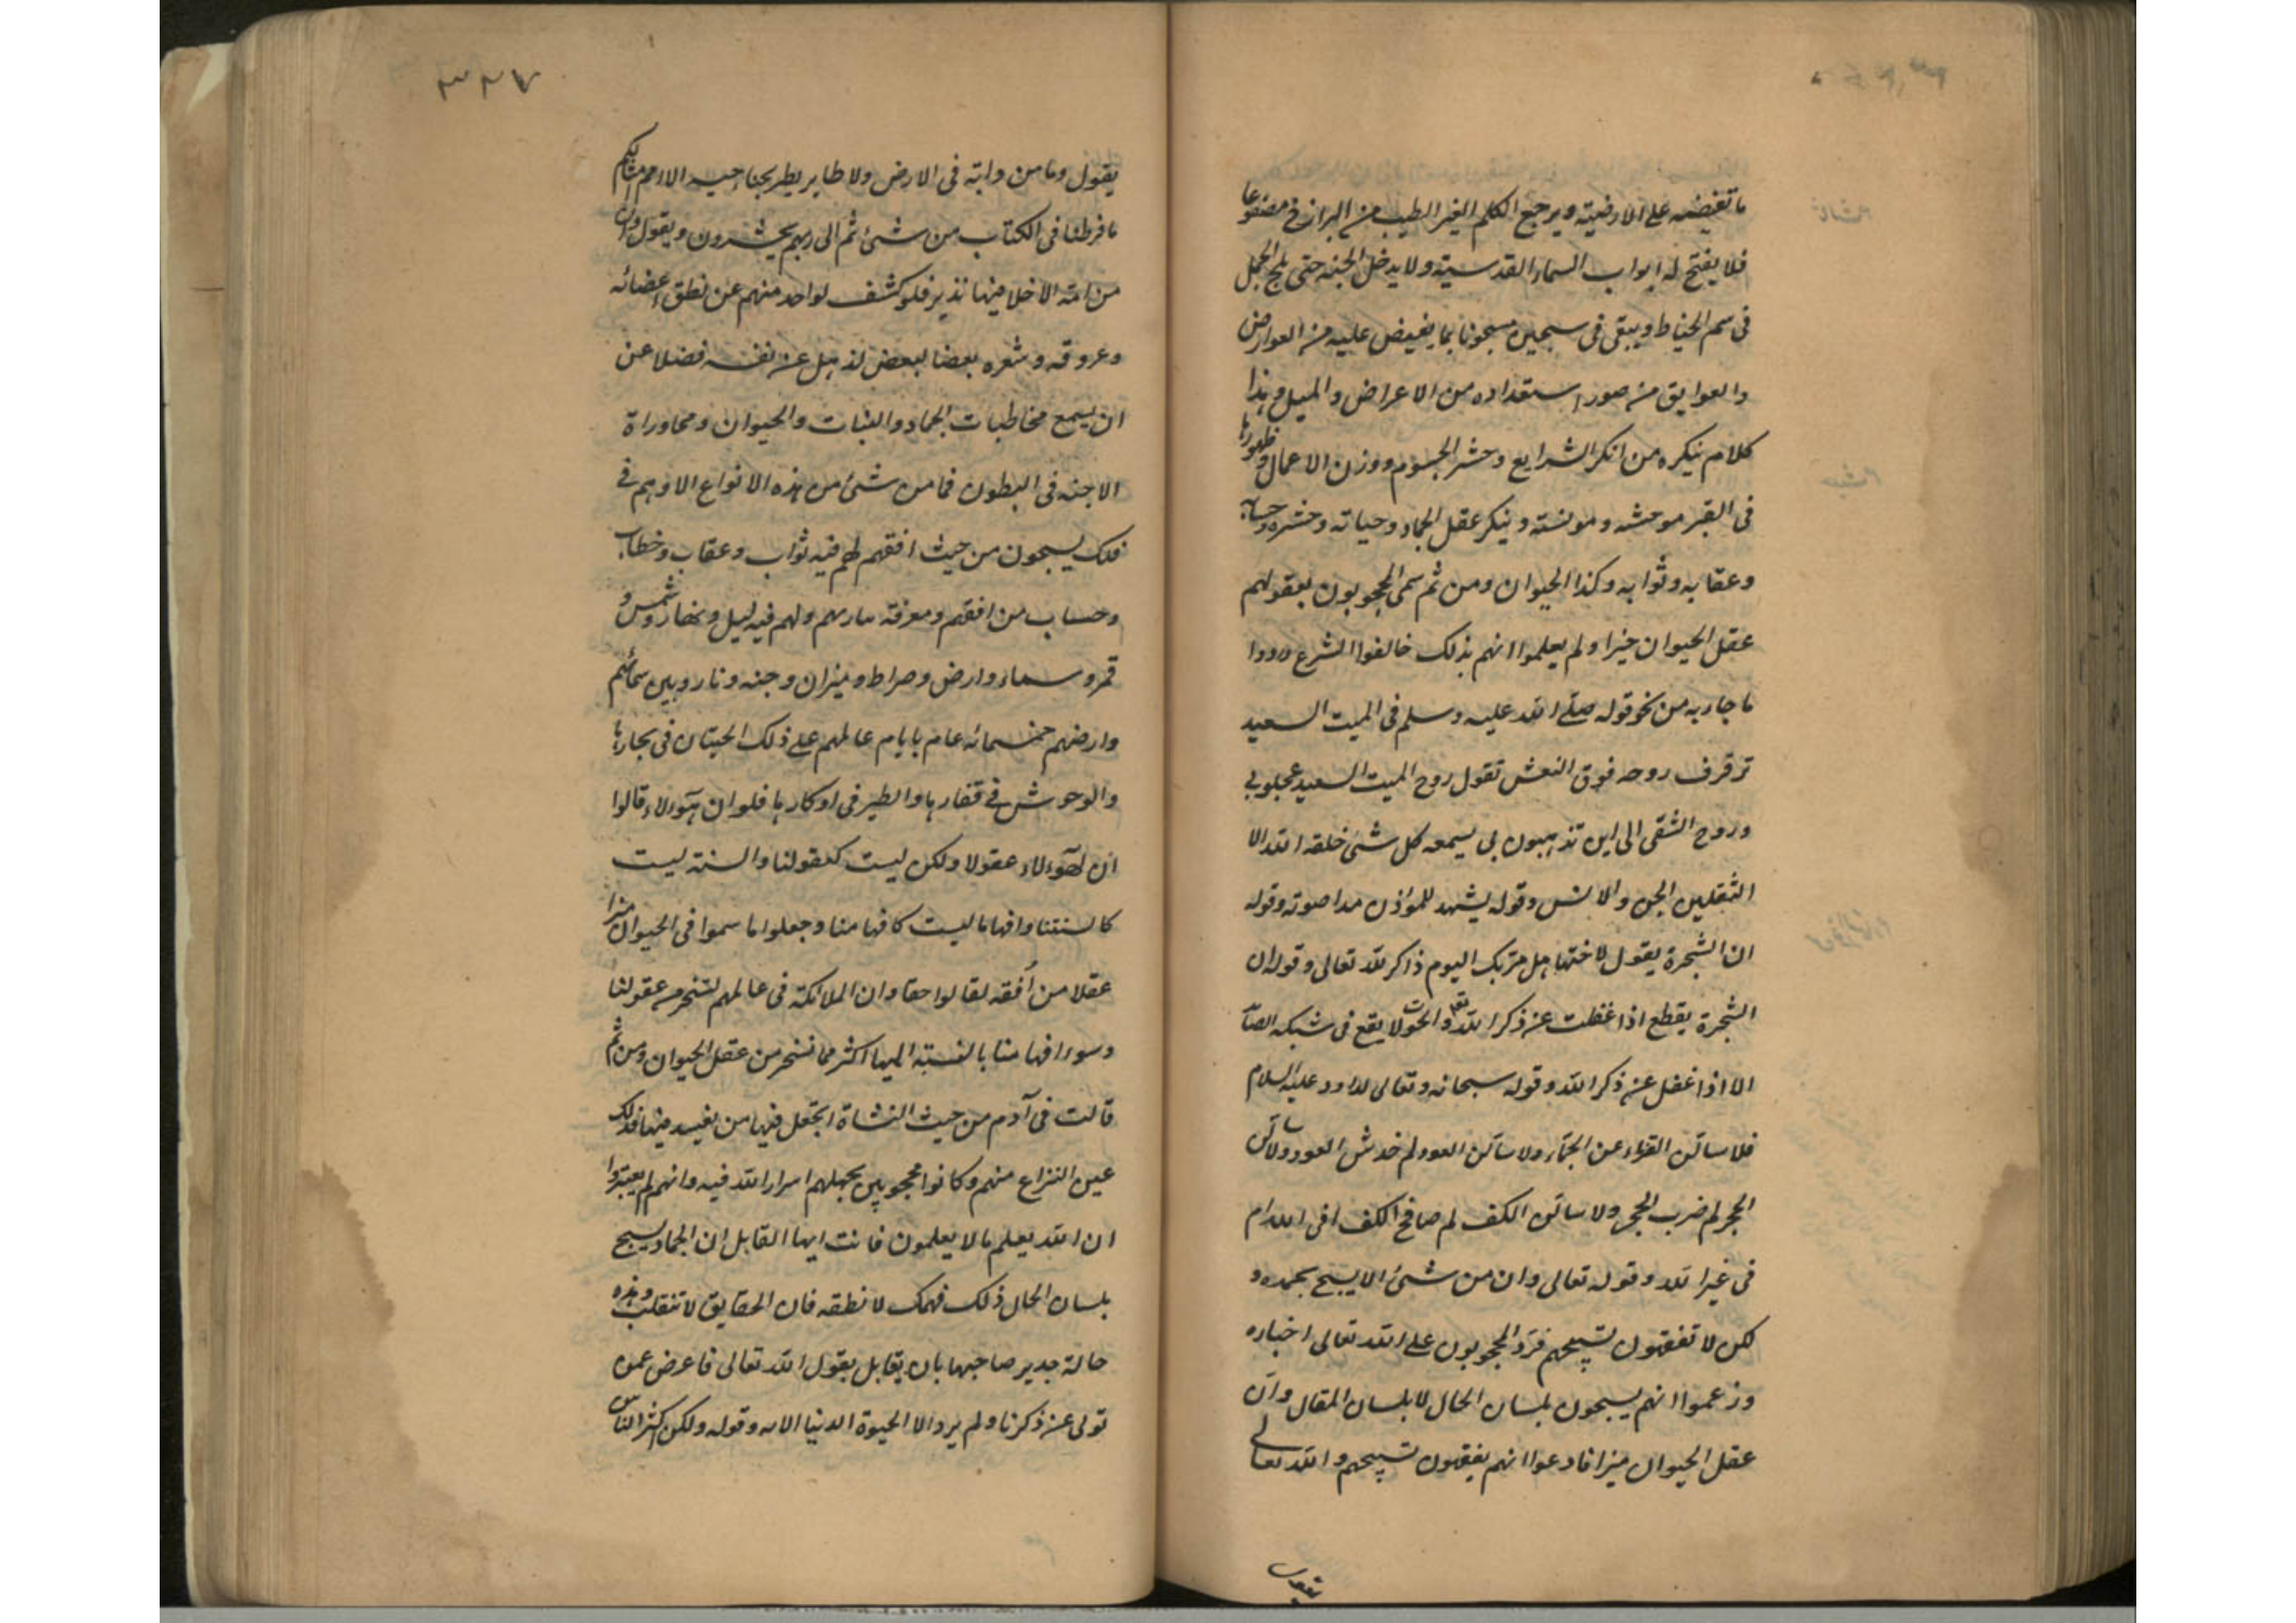 ما تفيضه على الارضية ويرجع الكلم الغير الطيب من البرازخ مصفوعا
فلا يفتح له ابواب السماء القدسية ولا يدخل الجنة حتى يلج الجمل
فى سم الخياط ويبقى فى سجين مسجونا بما يفيض عليه من العوارض
والعوايق من صور استعداده من الاعراض والميل وهذا
كلام ينكره من انكر الشرايع وحشر الجسوم ووزن الاعمال وظهورها
فى القبر موحشه ومونسته وينكر عقل الجماد وحياته وحشره وحسابه
وعقابه وثوابه وكذا الحيوان ومن ثم سمى المحجوبون بعقولهم
عقل الحيوان خيرا ولم يعلموا انهم بذلك خالفوا الشرع وردوا
ما جاء به من نحو قوله صلى الله عليه وسلم فى الميت السعيد
ترفرف روحه فوق النعش تقول روح الميت السعيد عجلوبى
وروح الشقى الى اين تذهبون بى يسمعه كل شئ خلقه الله الا
الثقلين الجن والانس وقوله يشهد للموذن مدا صوته وقوله
ان الشجرة يقول لاختها هل مر بك اليوم ذاكر لله تعالى وقوله ان
الشجرة يقطع اذا غفلت عن ذكر الله تعم والحوت لا يقع فى شبكه الصاد
الا اذا غفل عن ذكر الله وقوله سبحانه وتعالى لداود عليه السلام
فلاسالن القرناء عن الجماء ولاسالن العود لم خدش العود ولاسالن
الحجر لم ضرب الحجر ولاسالن الكف لم صافح الكف افى الله ام
فى غير الله وقوله تعالى وان من شئ الا يسبح بحمده و
لكن لا تفقهون تسبيحهم فرد المحجوبون على الله تعالى اخباره
وزعموا انهم يسبحون بلسان الحال لا بلسان المقال وان
عقل الحيوان ميزا فادعوا انهم يفقهون تسبيحهم والله تعالى
يقول
٣٢٧
يقول وما من دابة فى الارض ولا طاير يطير بجناحيه الا امم امثالكم
ما فرطنا فى الكتاب من شئ ثم الى ربهم يحشرون ويقول وان
من امة الا خلا فيها نذير فلو كشف لواحد منهم عن نطق اعضائه
وعروقه وشعره بعضا لبعض لذهل عن نفسه فضلا عن
ان يسمع مخاطبات الجماد والنبات والحيوان ومحاوراة
الاجنه فى البطون فما من شئ من هذه الانواع الا وهم فى
فلك يسبحون من حيث افقهم لهم فيه ثواب وعقاب وخطاب
وحساب من افقهم ومعرفة بارئهم ولهم فيه ليل ونهار وشمس و
قمر وسماء وارض وصراط وميزان وجنه ونار وبين سمائهم
وارضهم خمسمائه عام بايام عالمهم على ذلك الحيتان فى بحارها
والوحوش فى قفارها والطير فى اوكارها فلو ان هؤلاء قالوا
ان لهؤلاء عقولا ولكن ليست كعقولنا والسنة ليست
كالسنتنا وافهاما ليست كافهامنا وجعلوا ما سموا فى الحيوان ميزا
عقلا من افقه لقالوا حقا وان الملائكة فى عالمهم لتسخر من عقولنا
وسوء افهامنا بالنسبة اليها اكثر مما نسخر من عقل الحيوان ومن ثم
قالت فى آدم من حيث النشاة اتجعل فيها من يفسد فيها فذلك
عين النزاع منهم وكانوا محجوبين بجهلهم اسرار الله فيه وانهم لم يعتبروا
ان الله يعلم ما لا يعلمون فانت ايها القايل ان الجماد يسبح
بلسان الحال ذلك فهمك لا نطقه فان الحقايق لا تنقلب وهذه
حالة جدير صاحبها بان يقابل بقول الله تعالى فاعرض عمن
تولى عن ذكرنا ولم يرد الا الحيوة الدنيا الايه وقوله ولكن اكثر الناس